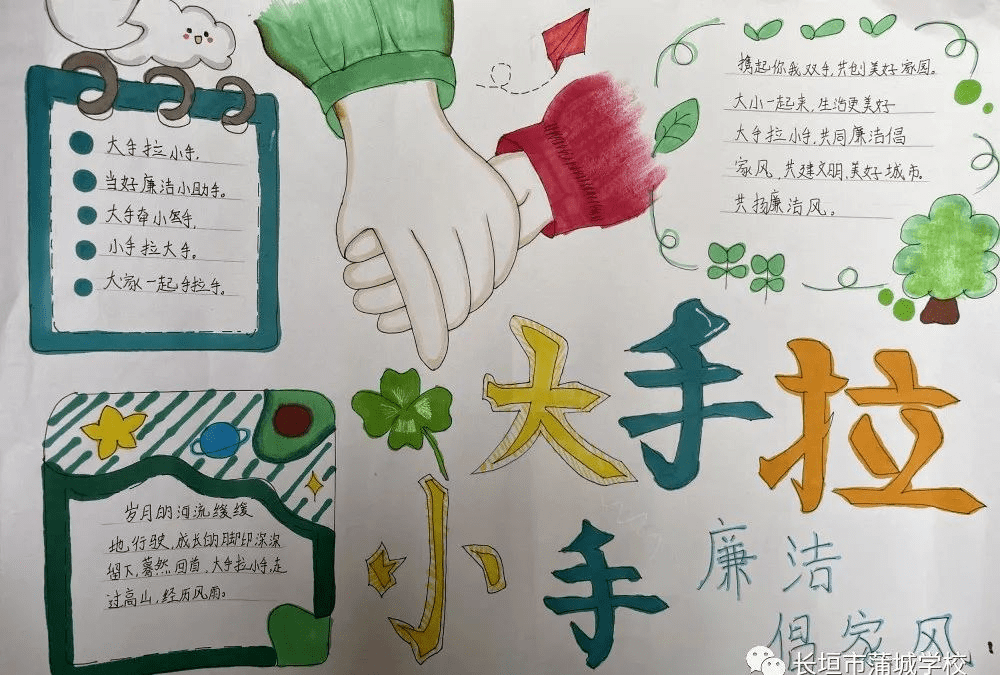 大手拉小手,
当好廉洁小助手。
大手牵小手,
小手拉大手。
大家一起手拉手。
携起你我双手,共创美好家园。
大小一起来,生活更美好
大手拉小手,共同廉洁倡
家风,共建文明,美好城市。
共扬廉洁风。
大手拉
小手
廉洁
倡家风
岁月的河流缓缓
地行驶,成长的脚印深深
留下,蓦然回首,大手拉小手,走
过高山,经历风雨。
长垣市蒲城学校